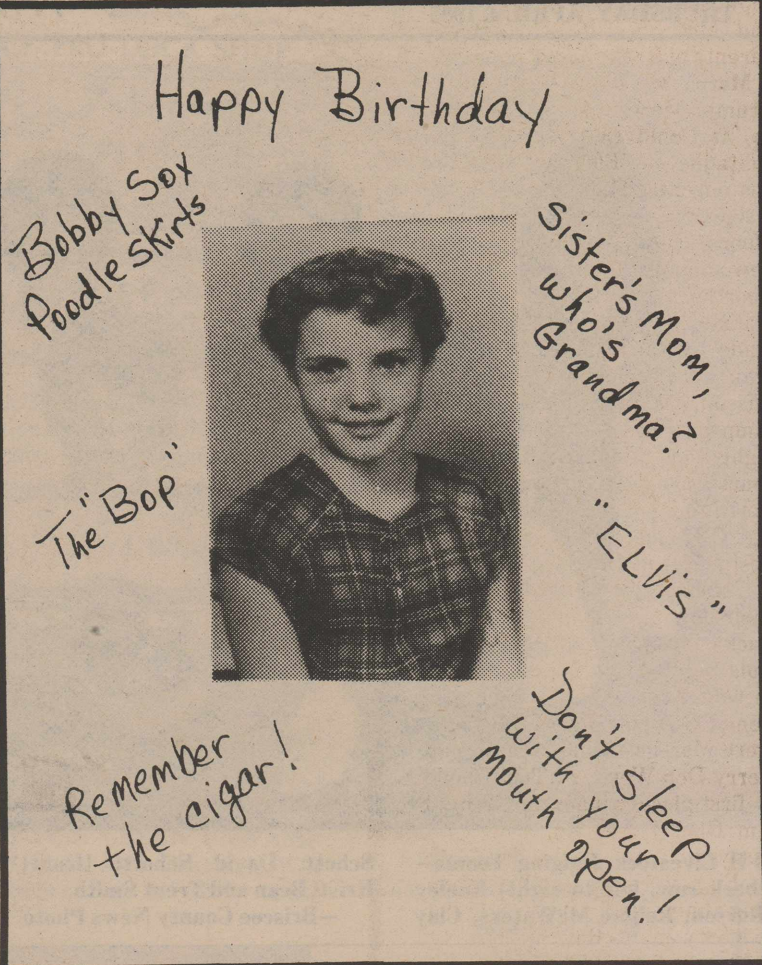 Happy Birthday
Bobby Sox
Poodle Skirts
Sister's Mom,
who's
Grandma?
The "Bop"
"ELViS"
Remember
the cigar!
Don't Sleep
with your
mouth open!